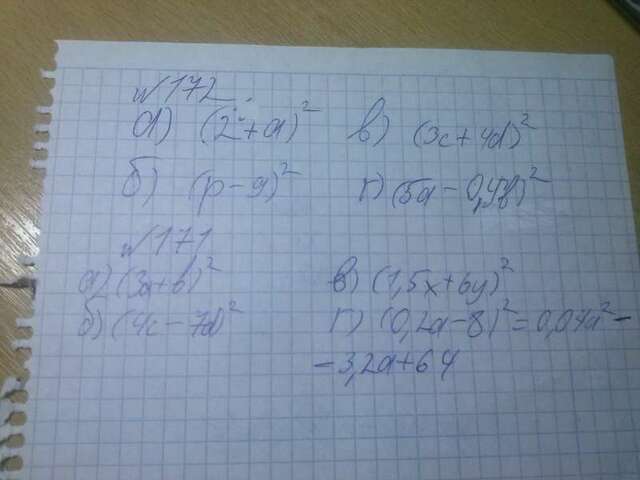 №172.
а) (2+а)² в) (3c+4d)²
б) (p-9)² г) (5a-0,4b)²
№171
а) (3a+b)² в) (1,5x+6y)²
б) (4c-7d)² г) (0,2a-8)²=0,04a²-
-3,2a+64